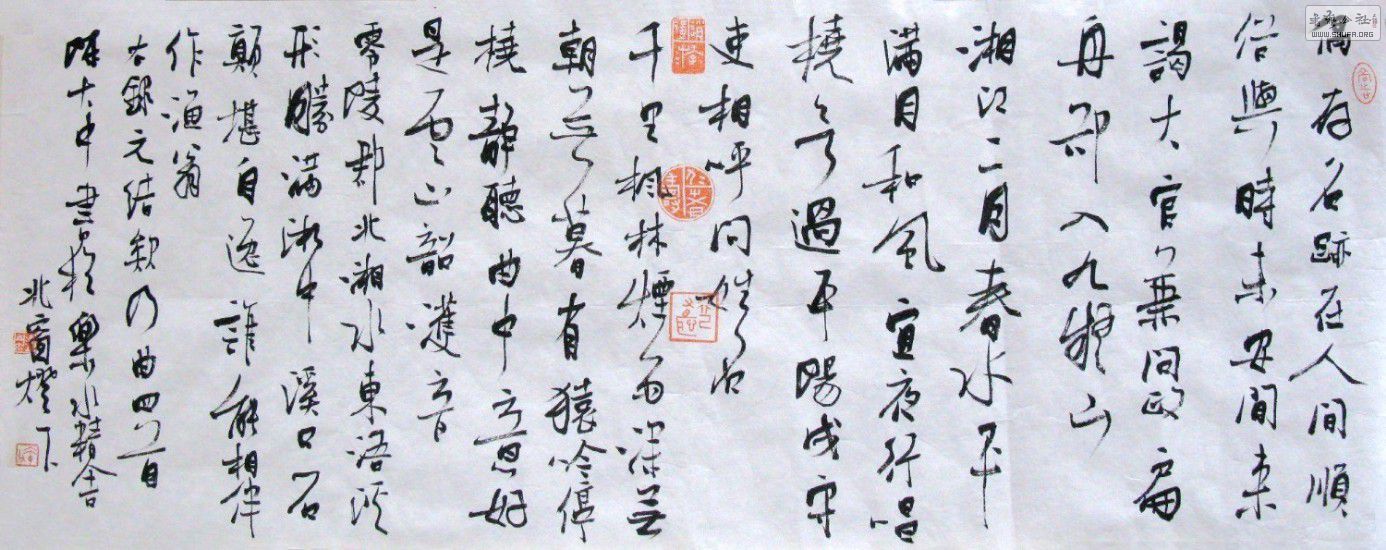 偏存名跡在人間順
俗與時未安間來
謁大官兼問政扁
舟卻入九疑山
湘江二月春水平
滿月和風宜夜行唱
橈欲過平陽戍守
吏相呼問姓名
千里楓林煙雨深無
朝無暮有猿吟停
橈靜聽曲中意好
是雲山韶濩音
零陵郡北湘水東浯溪
形勝滿湘中溪口石
顛堪自逸誰能相伴
作漁翁
右錄元結欸乃曲四首
陳大中書於樂水精舍
北窗燈下
WWW.SHUFA.ORG